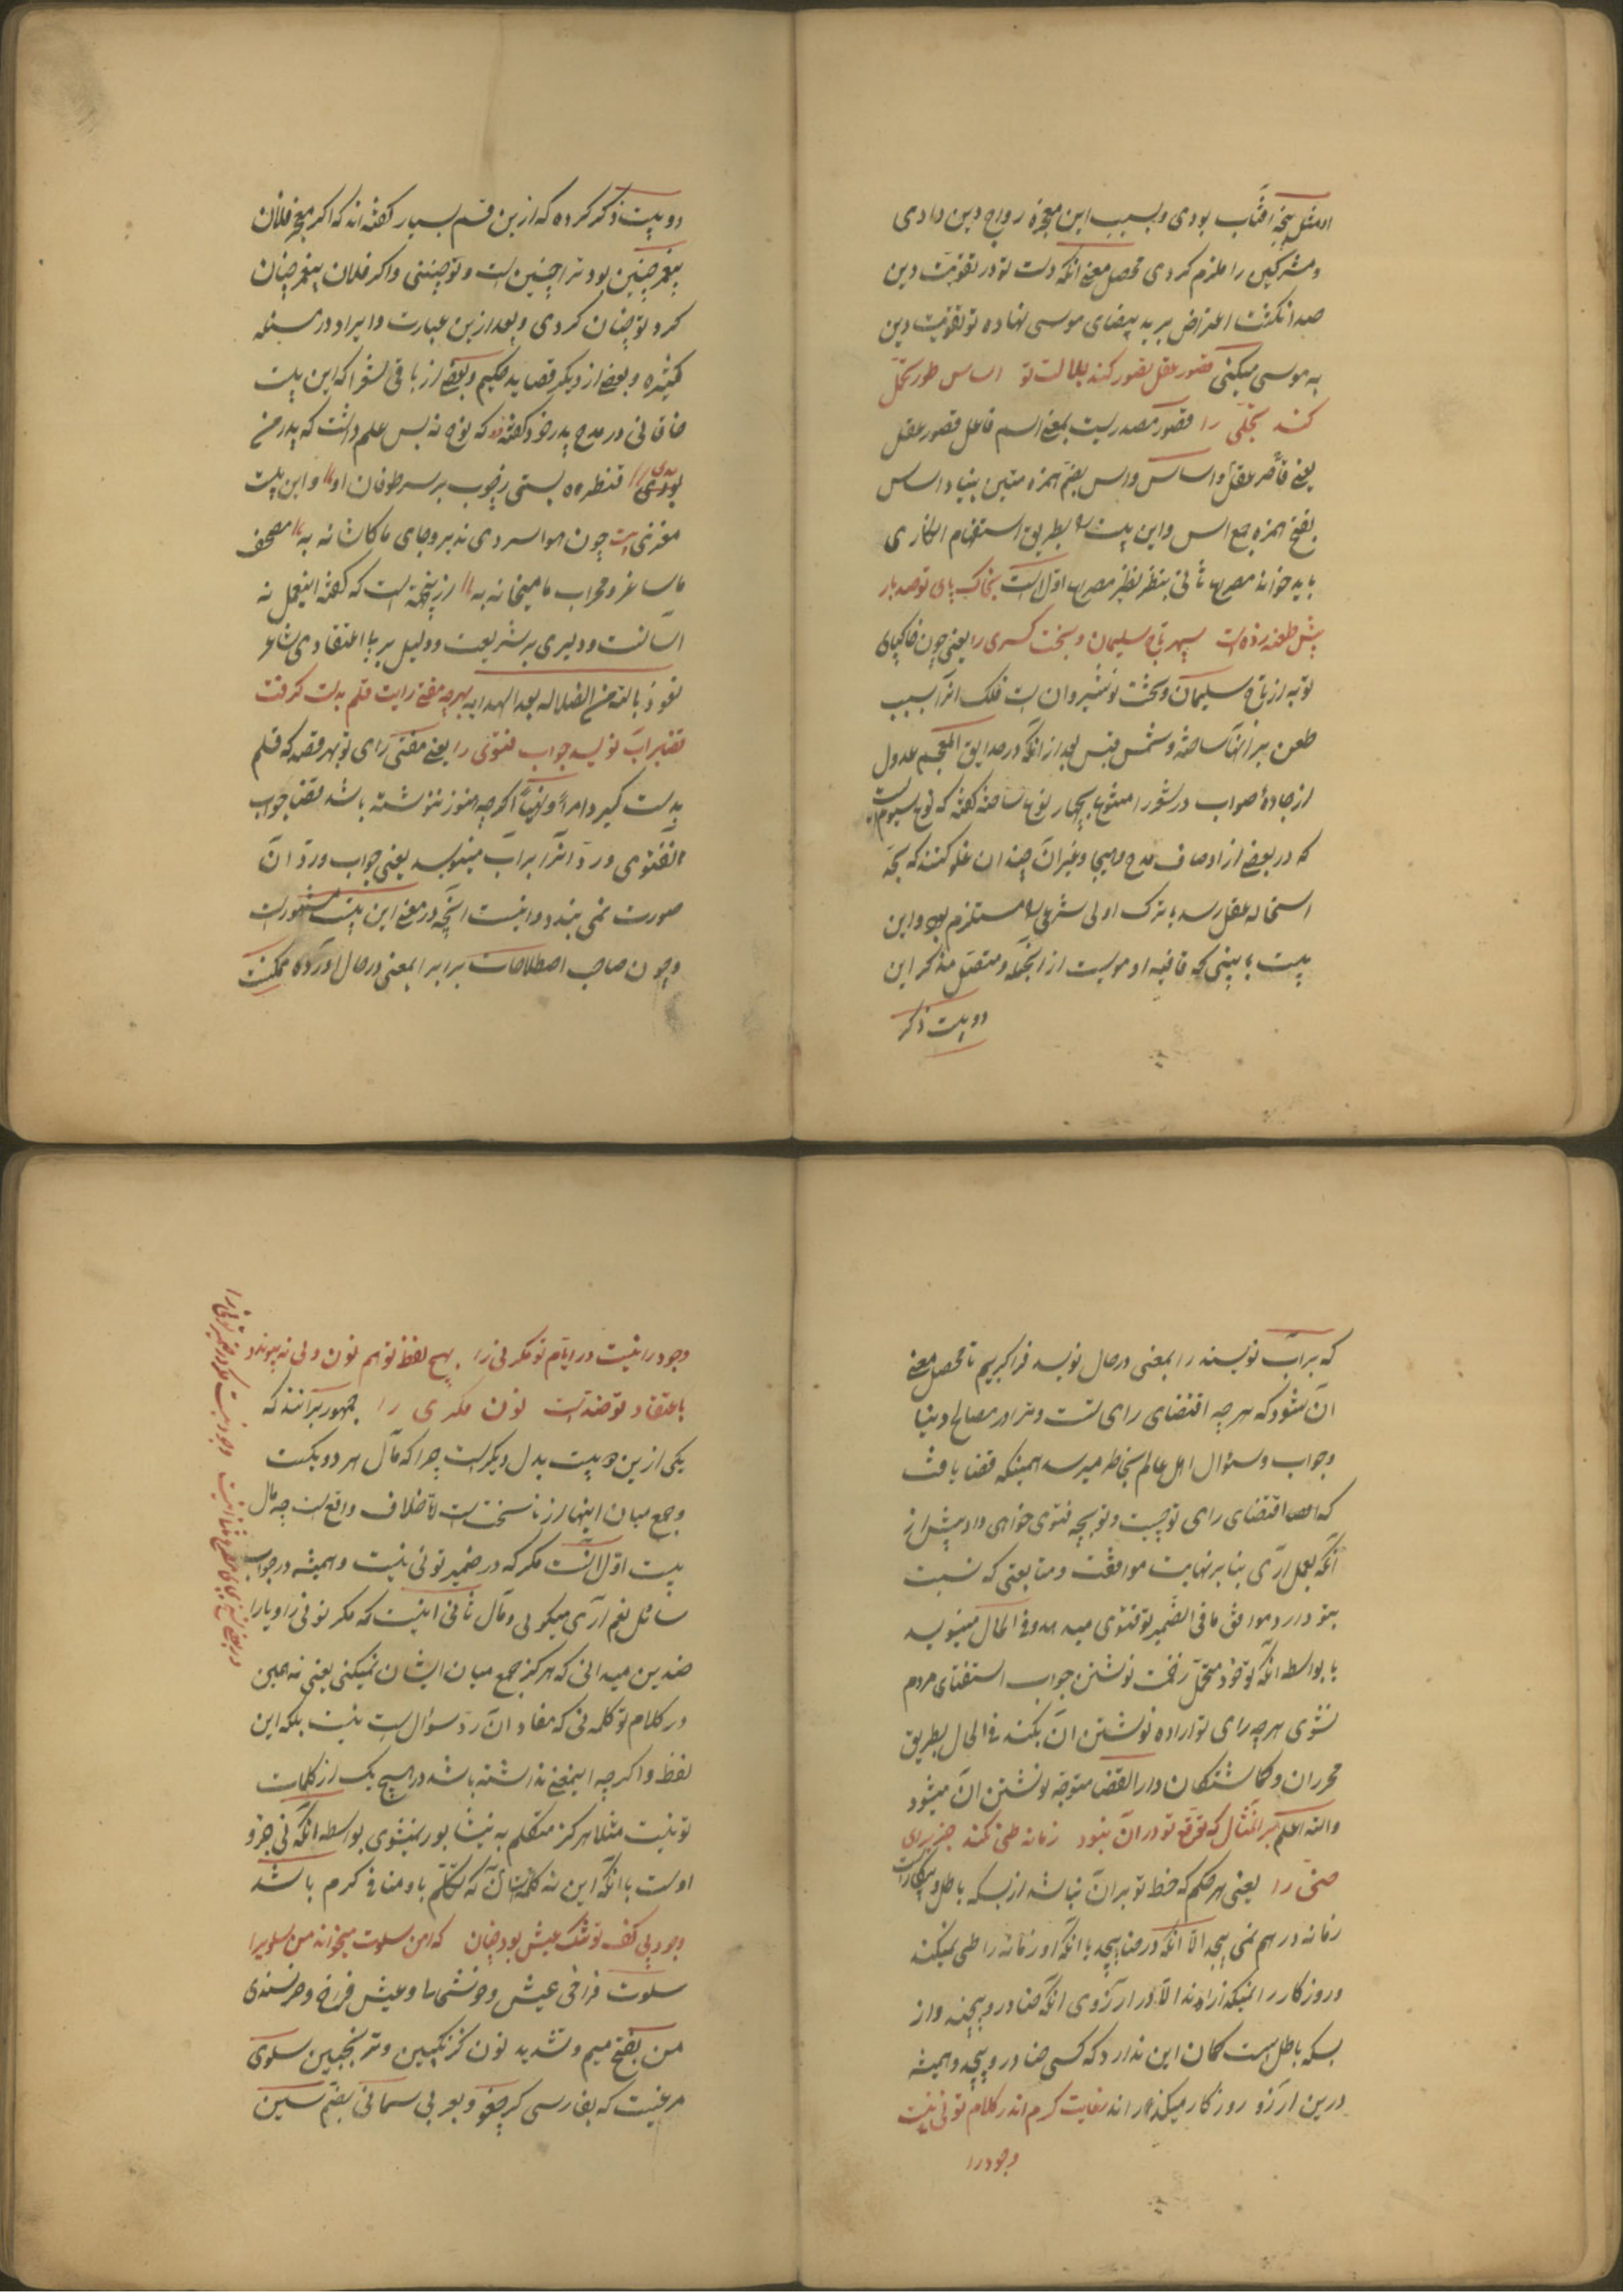 او مثل پنجه آفتاب بودی و بسبب این معجزه رواج دین دادی
و مشرکین را ملزم کردی محصل معنی آنکه دست تو در تقویت دین
صد انگشت اعتراض بر ید بیضای موسی نهاده تو تقویت دین
به موسی میکنی قصور عقل تصور کند جلالت تو اساس طور تحمل
کند تجلی را قصور مصدریست بمعنی اسم فاعل قصور عقل
یعنی قاصر عقل و اساس و اس بضم همزه متین بنیاد اساس
بفتح همزه جمع اس و این بیت را بطریق استفهام انکاری
باید خواند مصرع ثانی بنظر نظیر مصرع اول است بخاک پای تو صد بار
بیش طعنه زده است سپهر تاج سلیمان و تخت کسری را یعنی چون خاکپای
تو به از تاج سلیمان و تخت نوشیروان است فلک انرا سبب
طعن بر آنها ساخته و شمس قیس بعد از آنکه در حدایق المعجم عدول
از جاده صواب در شعر را مبنی بچهار نوع ساخته گفته که نوع سیوم است
که در بعضی از اوصاف مدح و هیجا و غیر آن چندان غلو کنند که بحد
استحاله عقلی رسد یا ترک اولی شرعی را مستلزم بود و این
بیت با بیتی که قافیه او موسیست از آنجمله و متصل بذکر این
دو بیت ذکر
دو بیت ذکر کرده که ازین قسم بسیار گفته اند که اگر معجز فلان
پیغمبر چنین بود ترا چنین است و تو چنینی و اگر فلان پیغمبر چنان
کرد تو چنان کردی و بعد ازین عبارت و ایراد در امثله
کثیره و بعضی از دیگر قصاید حکیم و بعضی از باقی شعرا که این بیت
خاقانی در مدح پدر خود گفته که نوح نه بس علم داشت که پدر من
بودی قنطره بستی ز چوب بر سر طوفان او و این بیت
مغزی است چون هوا سردی پذیرد جای ما کاشانه به مصحف
ما ساغر و محراب ما میخانه به ازینجمله است که گفته اینعمل نه
آسانست و دلیری بر شریعت و دلیل بر بد اعتقادی شاعر
نعوذ بالله من الضلاله بعد الهدایه بهرچه مفتی رایت قلم بدست گرفت
قضا براب نویسد جواب فتوی را یعنی مفتی رای تو بهر قصد که قلم
بدست گیرد امرا و نهیا اگرچه هنوز ننوشته باشد قضا جواب
آنفتوی و رد آنرا بر آب مینویسد یعنی جواب و رد آن
صورت نمی بندد و اینست آنچه در معنی این بیت مشهور است
و چون صاحب اصطلاحات بر آب را بمعنی در حال آورده ممکنست
که بر آب نویسند را بمعنی در حال نویسد فراگیریم تا محصل معنی
آن شود که هرچه اقتضای رای تست و ترا در مصالح دنیا
و جواب و سؤال اهل عالم بخاطر میرسد همینکه قضا یافت
که اقتضای رای تو چیست و تو بچه فتوی خواهی داد پیش از
آنکه بعمل آری بنا بر نهایت موافقت و متابعتی که نسبت
بتو دارد موافق ما فی الضمیر تو فتوی میدهد و فی الحال مینویسد
یا بواسطه آنکه تو خود متحمل زحمت نوشتن جواب استفتای مردم
نشوی هرچه رای تو اراده نوشتن آن بکند فی الحال بطریق
محرران و گماشتگان دار القضا متوجه نوشتن آن میشود
والله اعلم بر امثال که توقیع تو در آن نبود زمانه طی نکند جز برای
حنی را یعنی هر حکم که خط تو بر آن نباشد از بسکه باطل و بیکار است
زمانه در هم نمی پیچد الا آنکه در حنا پیچد با آنکه او زمانه را طی میکند
و روزگار را نمیگذراند الا در آرزوی آنکه حنا در و پیچند و از
بسکه باطل است گمان این ندارد که کسی حنا در و پیچد و همیشه
درین آرزو روزگار میگذراند ز غایت کرم اندر کلام تو نی نیست
وجود را
وجود را نیست در ایام تو مگر نی را بهیچ لفظ تو هم نون و لی نه پیوندد
باعتقاد تو ضد است نون مگر ی را جمهور برانند که
یکی ازین دو بیت بدل دیگر است چرا که مآل هر دو یکیست
و جمع میان اینها از ناسختست الا خلاف واقع است چه مآل
بیت اول آنست مگر که در ضمیر تو نی نیست و همیشه در جواب
سائل نعم آری میگوئی و مآل ثانی اینست که مگر تو نی را و یا را
ضدین میدانی که هرگز جمع میان ایشان نمیکنی یعنی نه همین
در کلام تو کلمه نی که مفاد آن رد سوال است نیست بلکه این
لفظ و اگرچه اینمعنی نداشته باشد در هیچ یک از کلمات
تو نیست مثلا هرگز متکلم به نیشابور نمیشوی بواسطه آنکه نی جزو
اوست با آنکه این نه کلمه ایست که تکلم باو منافی کرم باشد
وجود بی کف تو تنگ عیش بود چنان که امن سلوت میخواند من سلوی را
سلوت فراخی عیش و خوشی ها و عیش فراخ و خرسندی
من بفتح میم و تشدید نون گزنگبین و ترنجبین سلوی
مرغیست که بفارسی کرجفو و بعربی سمانی بضم سین